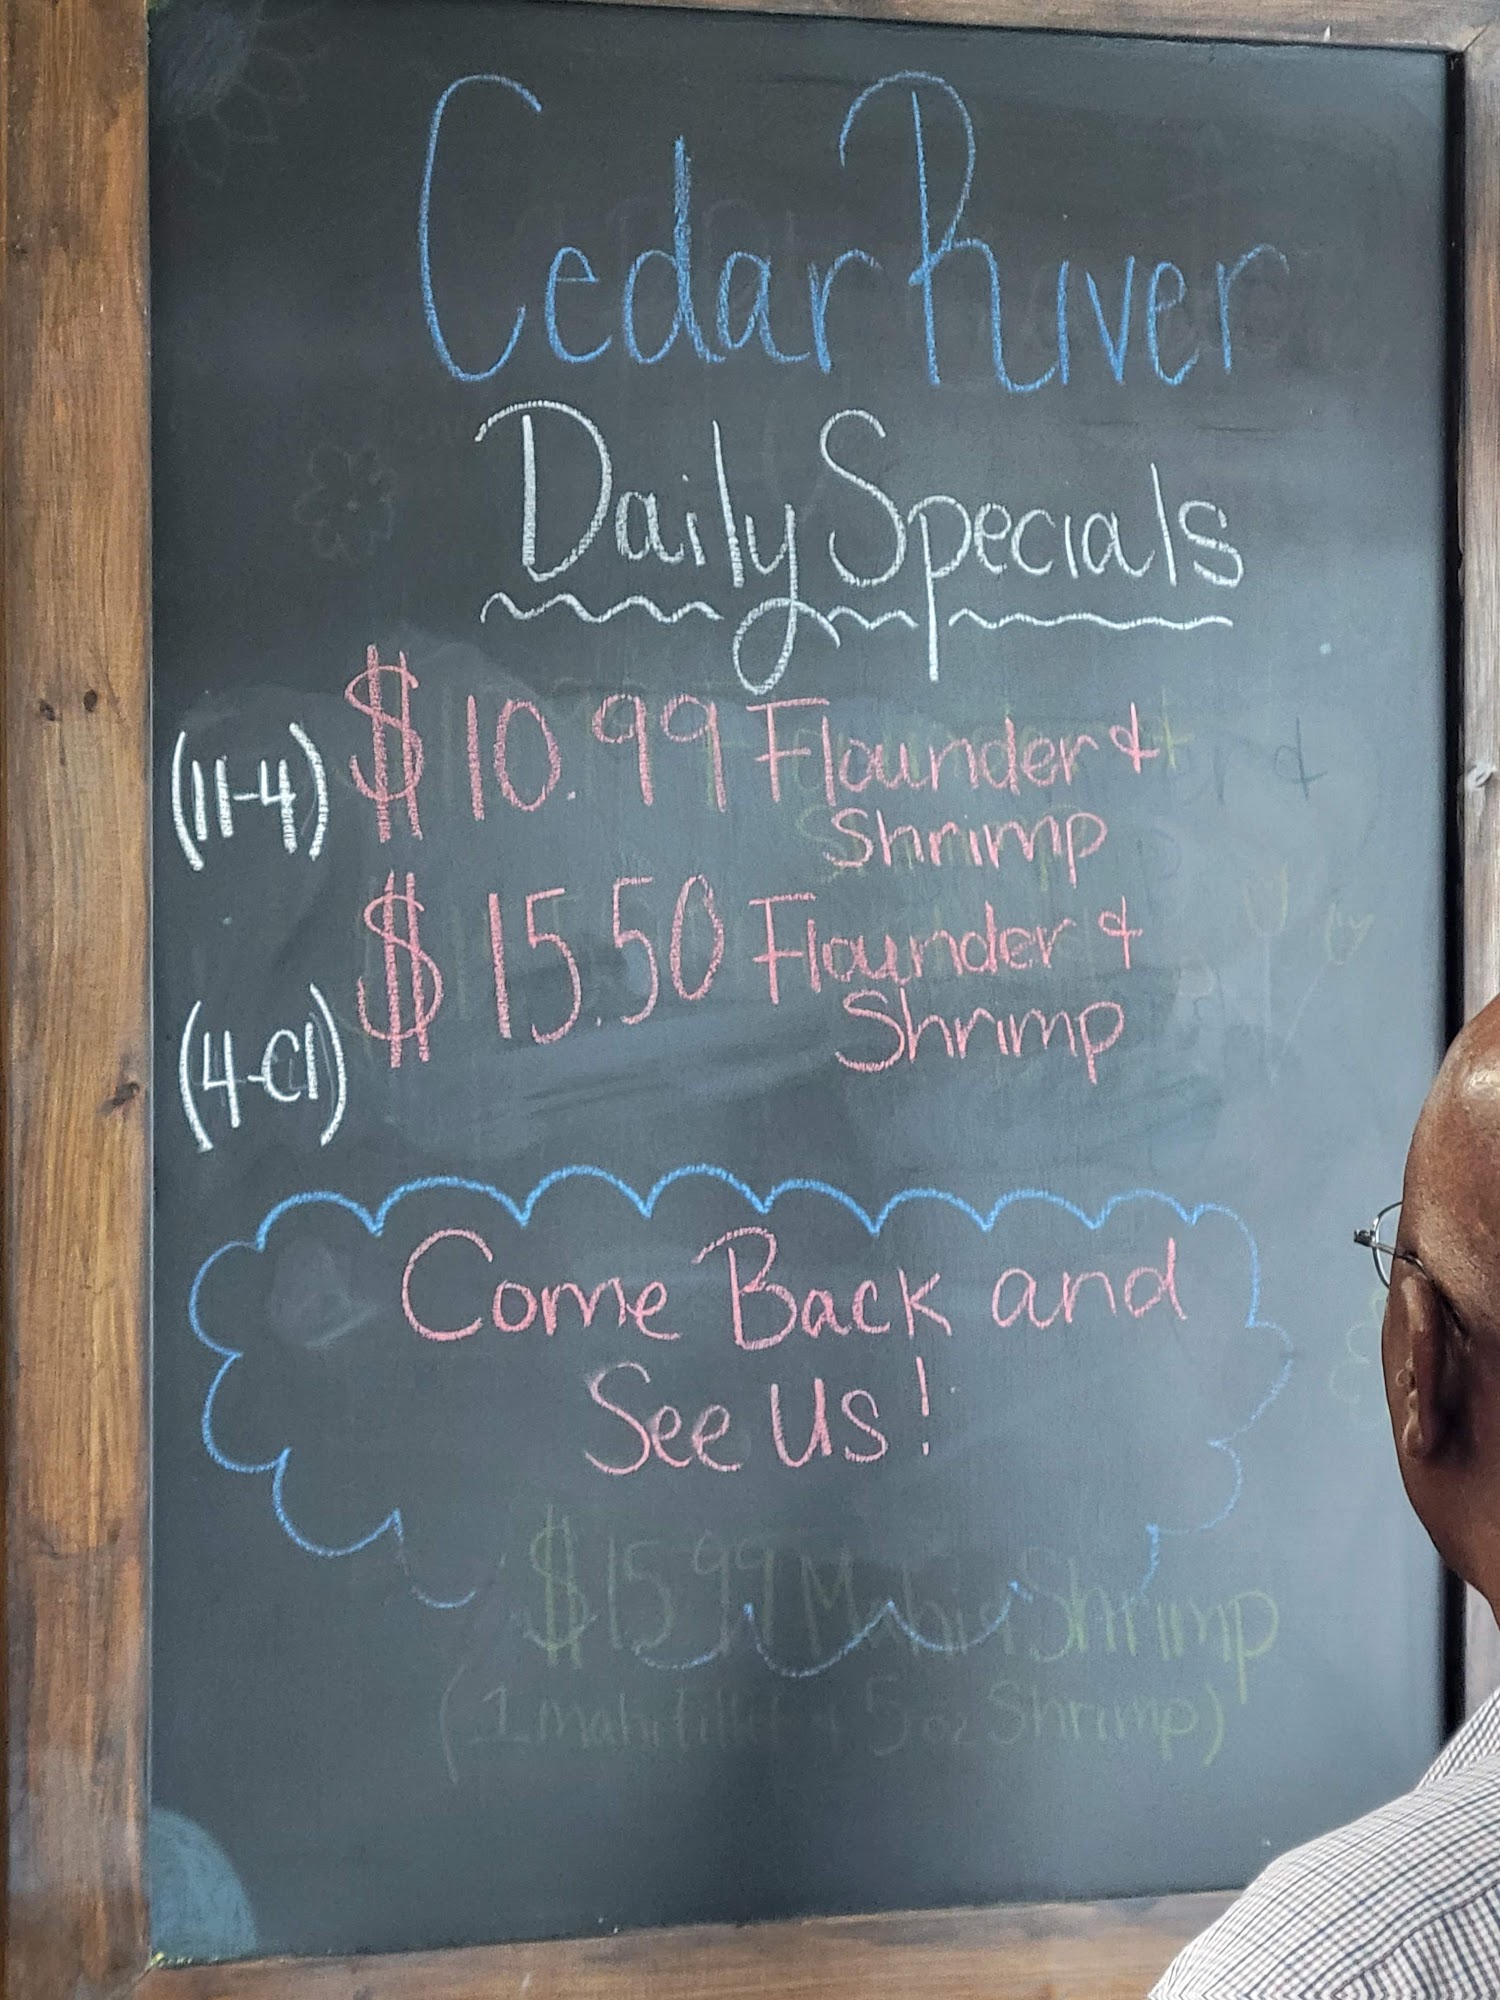 Cedar River
Daily Specials
(11-4) $10.99 Flounder &
Shrimp
$15.50 Flounder &
(4-Cl) Shrimp
Come Back and
See Us!
$15.99 Mahi & Shrimp
(1 mahi fillet + 5 oz Shrimp)